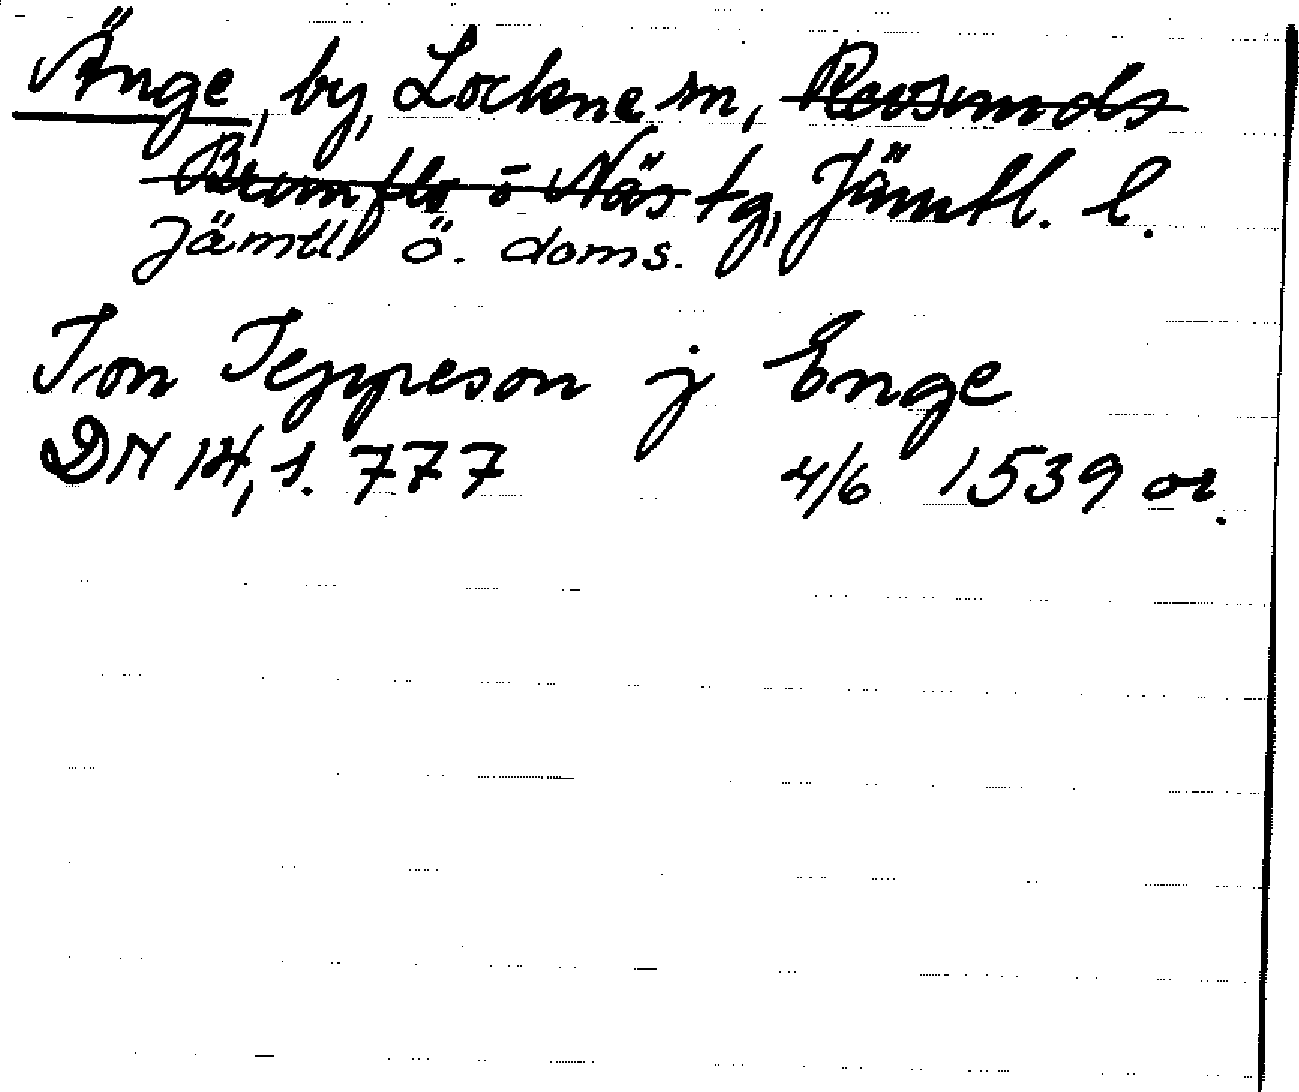 Änge, by, Lockne sn, Revsunds
Brunflo o Näs tg, Jämtl. l.
Jämtl. Ö. doms.
Jon Jeppeson j Enge
DN 14, s. 777 4/6 1539 or.